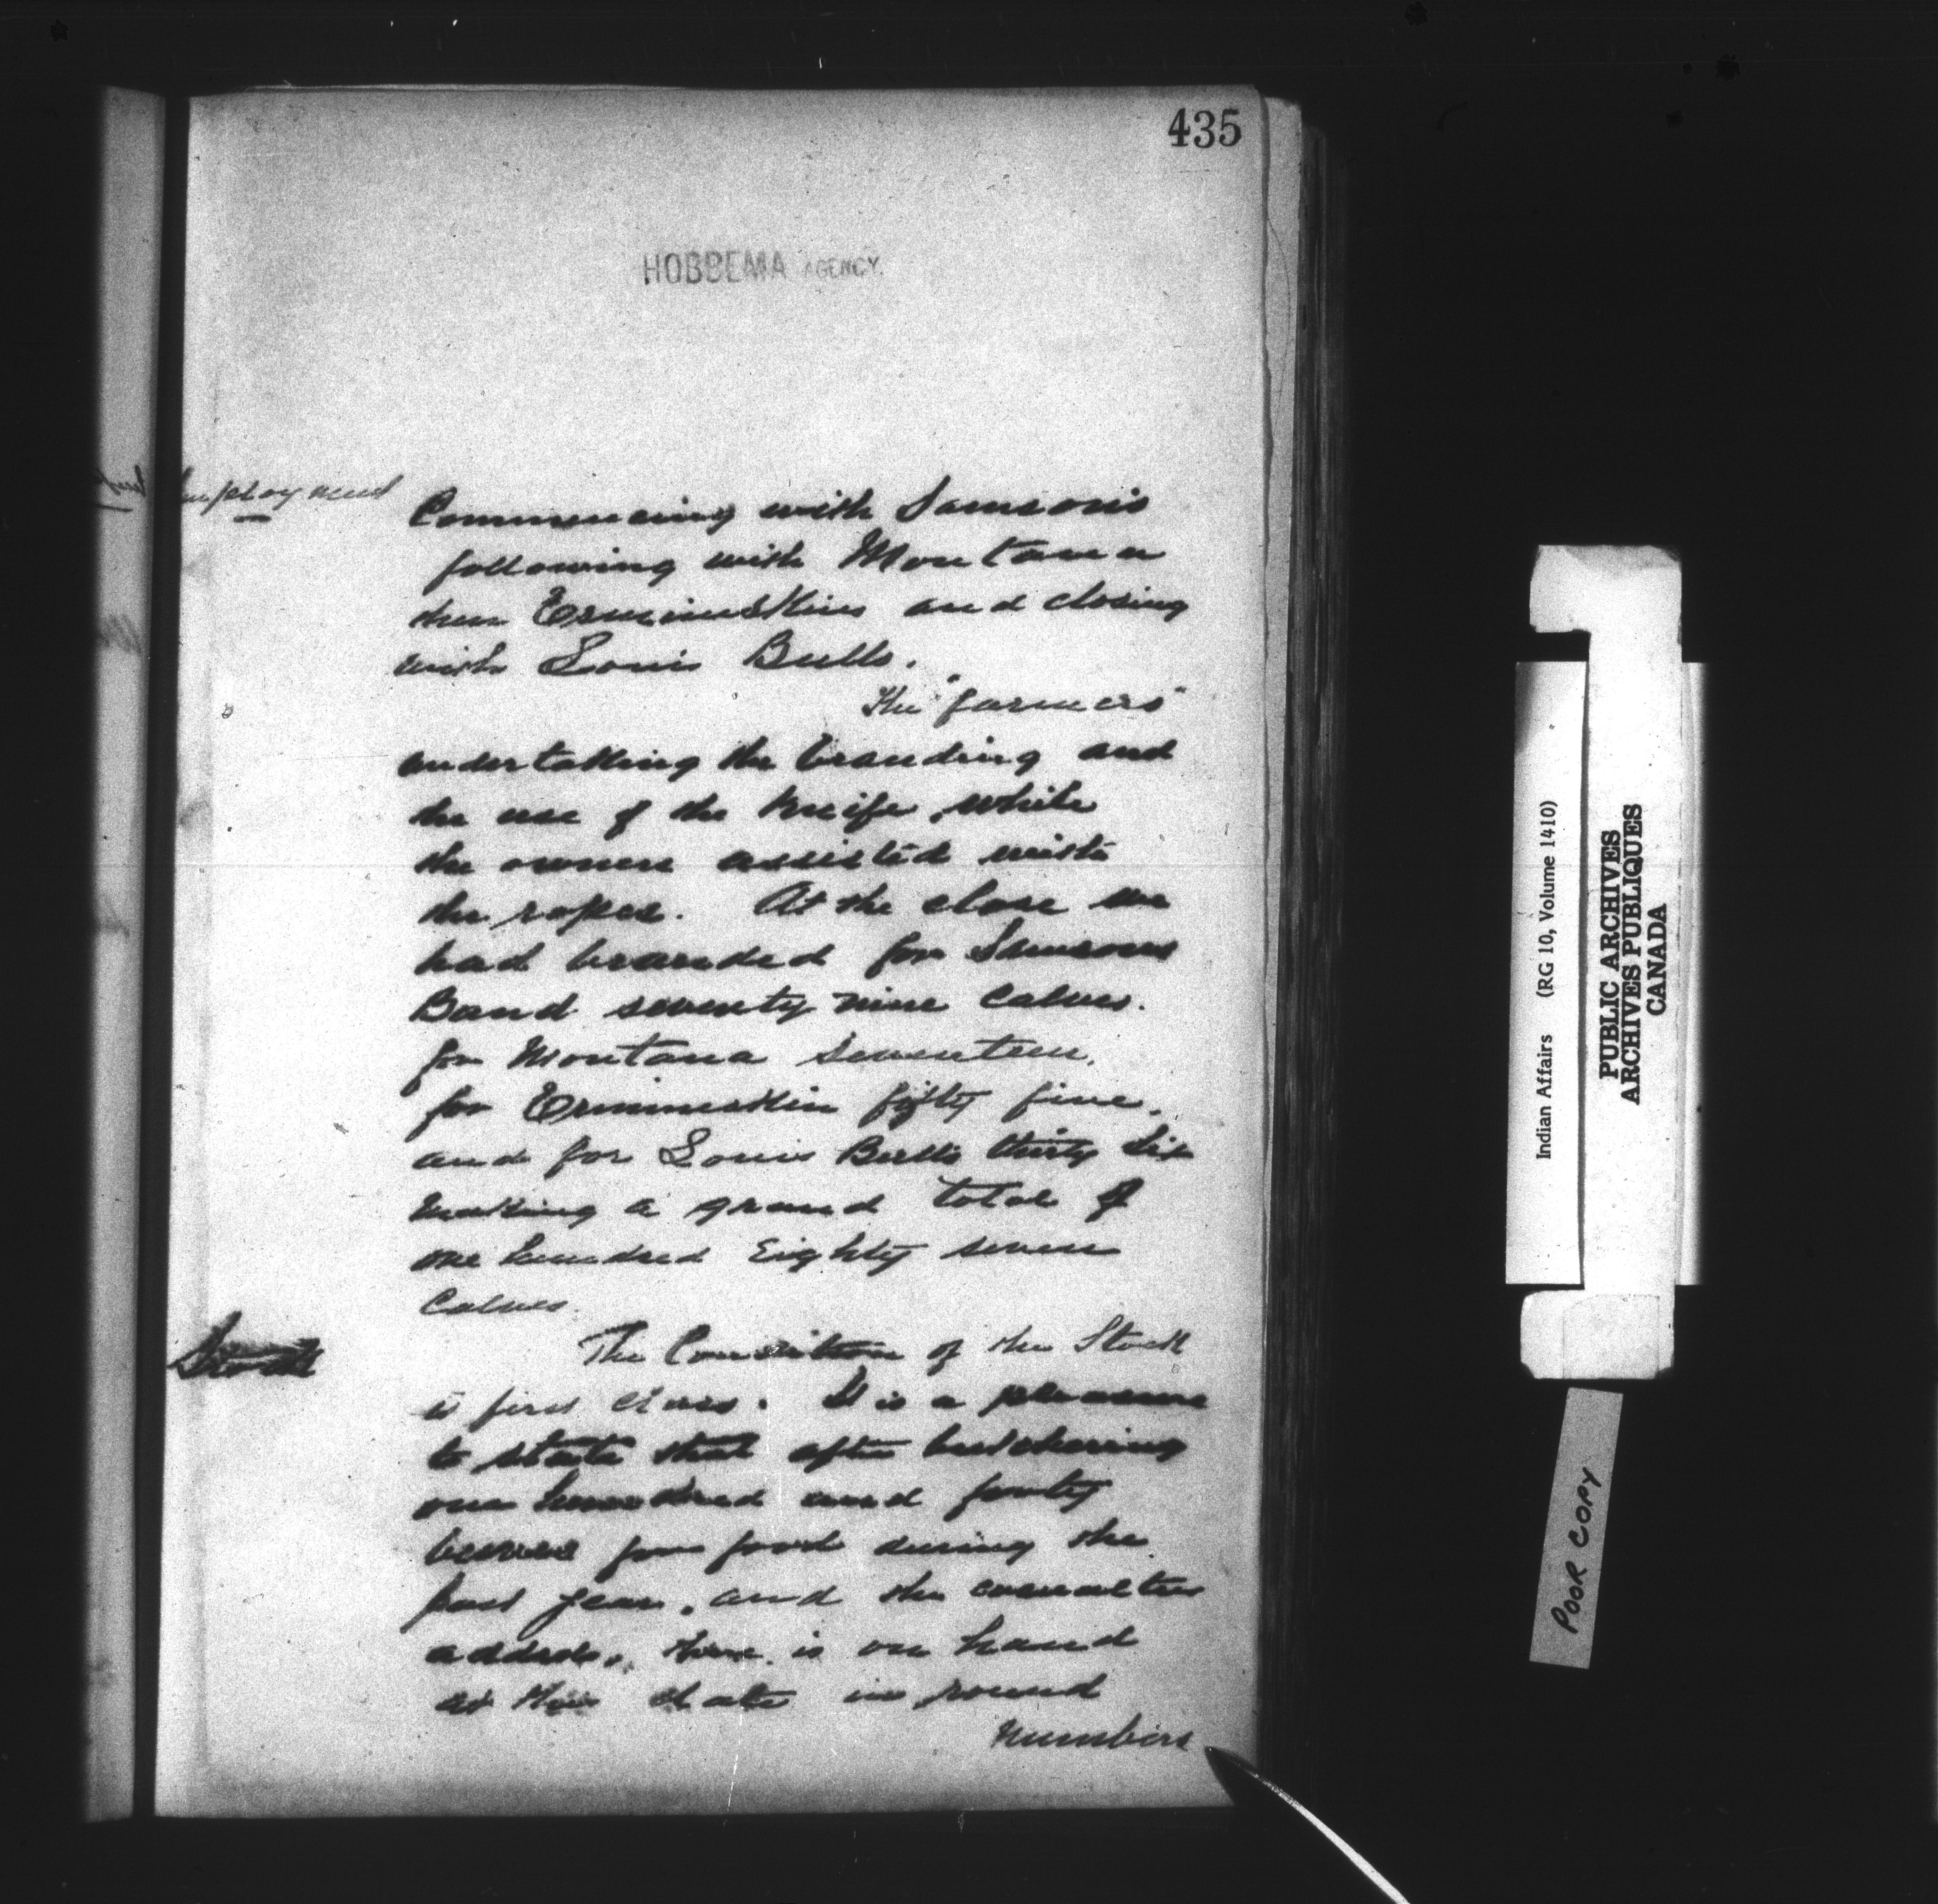 435
HOBBEMA AGENCY.
Employment
Commencing with Samsons
following with Montana
then Ermineskins and closing
with Louis Bulls.
The "farmers"
undertaking the branding and
the use of the knife, while
the owners assisted with
the ropes. At the close we
had branded for Samsons
Band seventy nine Calves.
for Montana seventeen,
for Ermineskin fifty five,
and for Louis Bulls thirty six
making a grand total of
one hundred Eighty seven
Calves.
Stock
The Condition of the Stock
is first class. It is a pleasure
to state that after butchering
one hundred and forty
beeves for food during the
past year, and the casualties
added, there is on hand
at this date in round
numbers
Indian Affairs (RG 10, Volume 1410)
PUBLIC ARCHIVES
ARCHIVES PUBLIQUES
CANADA
POOR COPY